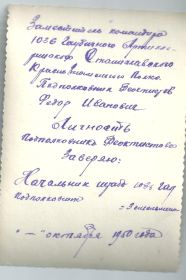 Заместитель командира
1036 Гаубичного Артил-
рийского Станиславского
Краснознаменного Полка.
Подполковник
Федор Иванович
Личность
Подполковника
Заверяю:
Начальник штаба 1036 Гап
Подполковник
"—" октября 1950 года